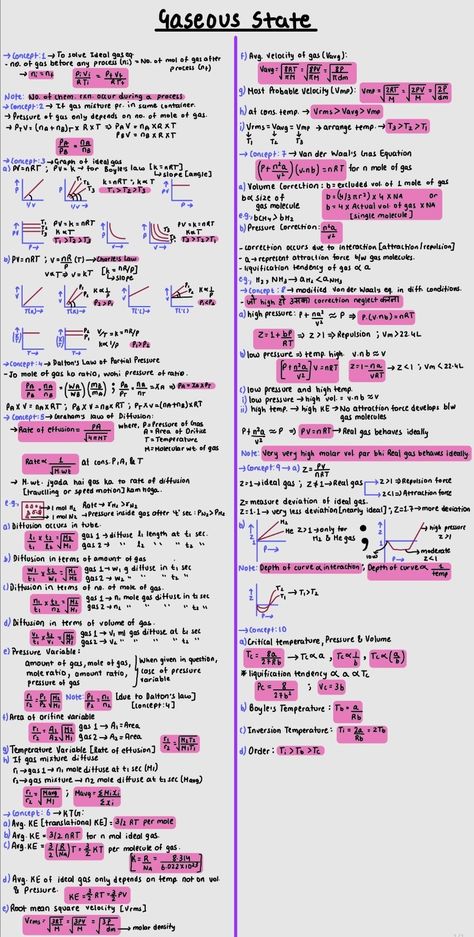 Gaseous State
→ Concept:1 → To solve Ideal gas eq.
- no. of gas before any process (ni) = No. of mol of gas after process (nf)
→ ni = nf   PiVi/RTi = PfVf/RTf
Note: No. of chem. rxn occur during a process
→ Concept:2 → If gas mixture pr. in same container.
→ Pressure of gas only depends on no. of mole of gas.
→ PTV = (nA + nB)·r x RXT ⇒ PAV = nA X RXT
PBV = nB X RXT
PA/PB = nA/nB
→ Concept:3 → Graph of ideal gas
a) PV = nRT ; PV = k → for Boyles law [k = nRT]
↳ slope [angle]
k = nRT ; K ∝ T
T1 > T2 > T3
PV = k = nRT
K ∝ T
T1 > T2 > T3
PV = k = nRT
K ∝ T
T3 > T2 > T1
b) PV = nRT ; V = nR/P (T) → Charles law
V ∝ T ⇒ V = kT [k = nR/P]
↳ slope
K ∝ 1/P
P1 < P2
V/T = K = nR/P
K ∝ 1/P   P1 > P2
→ Concept:4 → Dalton's Law of Partial Pressure
- Jo mole of gas ka ratio, wohi pressure of ratio.
PA/PB = nA/nB = (WA/WB) (MB/MA) ; PA/PT = nA/nT = XA ⇒ PA = XA x PT
PA X V = nA X RT ; PB X V = nB X RT ; PT X V = (nA + nB) X RT
→ Concept:5 → Grahams law of Diffusion:
→ Rate of effusion = PA/√2πMRT where, P = Pressure of Gas
A = Area of Orifice
T = Temperature
M = Molecular wt of gas
Rate ∝ 1/√M.wt at cons. P, A, & T
→ M.wt. jyada hai gas ka to rate of diffusion [travelling or speed motion] kam hoga.
e.g.
→ 1 mol H2
→ 1 mol N2
Rate → rH2 > rN2
→ Pressure inside gas after 't' sec: PN2 > PH2
a) Diffusion occurs in tube.
l1/t1 x t2/l2 = √M2/M1 gas 1 → diffuse l1 length at t1 sec.
gas 2 → " l2 " " t2 "
b) Diffusion in terms of amount of gas
w1/t1 x t2/w2 = √M1/M2 gas 1 → w1 g diffuse in t1 sec
gas 2 → w2 " " " t2 "
c) Diffusion in terms of no. of mole of gas.
n1/t1 x t2/n2 = √M2/M1 gas 1 → n1 mole gas diffuse in t1 sec
gas 2 → n2 " " " " t2 "
d) Diffusion in terms of volume of gas.
V1/t1 x t2/V2 = √M2/M1 gas 1 → V1 ml gas diffuse at t1 sec
gas 2 → V2 " " " " t2 "
e) Pressure Variable:
amount of gas, mole of gas, mole ratio, amount ratio, pressure of gas
When given in question, case of pressure variable
r1/r2 = P1/P2 √M2/M1 Note: P1/P2 = n1/n2 [due to Dalton's law] [concept:4]
f) Area of orifine variable
r1/r2 = A1/A2 √M2/M1 gas 1 → A1 = Area
gas 2 → A2 = Area
g) Temperature Variable [Rate of effusion] r1/r2 = √M2T2/M1T1
h) If gas mixture diffuse
r1 → gas 1 → n1 mole diffuse at t1 sec (M1)
r2 → gas mixture → n2 mole diffuse at t2 sec (Mavg)
r1/r2 = √Mavg/M1 ; Mavg = ΣMiXi/ΣXi
→ Concept: 6 → KTG:
a) Avg. KE [translational KE] = 3/2 RT per mole
b) Avg. KE = 3/2 nRT for n mol ideal gas.
c) Avg. KE = 3/2 (R/NA) T = 3/2 KT per molecule of gas.
[K = R/NA = 8.314/6.022X10²³]
d) Avg. KE of ideal gas only depends on temp. not on vol. & Pressure. KE = 3/2 RT = 3/2 PV
e) Root mean square velocity [Vrms]
Vrms = √3RT/M = √3PV/M = √3P/dm → molar density
f) Avg. velocity of gas (Vavg):
Vavg = √8RT/πM = √8PV/πM = √8P/πdm
g) Most Probable Velocity (Vmp): Vmp = √2RT/M = √2PV/M = √2P/dm
h) at cons. temp. → Vrms > Vavg > Vmp
i) Vrms = Vavg = Vmp → arrange temp. → T3 > T2 > T1
→ Concept: 7 → Van der Waal's Gas Equation
(P + n²a/V²) (V-nb) = nRT for n mole gas
a) Volume Correction: b = excluded vol of 1 mole of gas
b ∝ size of gas molecule
b = (4/3 πr³) x 4 x NA or
b = 4 x Actual vol of gas x NA [single molecule]
e.g: bCH4 > bH2
b) Pressure Correction: n²a/V²
- correction occurs due to interaction [attraction/repulsion]
- a → represent attraction force b/w gas molecules.
- liquification tendency of gas ∝ a
e.g., H2, NH3 → aH2 < aNH3
→ Concept: 8 → modified Van der Waals eq. in diff conditions.
- जो high हो उसका correction neglect करना
a) high pressure: P + n²a/V² ≈ P ⇒ P·(V-nb) = nRT
Z = 1 + bP/RT ⇒ Z > 1 → Repulsion ; Vm > 22.4L
b) low pressure ⇒ temp. high V-nb ≈ V
[P + n²a/V²] V = nRT   Z = 1 - na/VRT → Z < 1 ; Vm < 22.4L
c) low pressure and high temp.
i) low pressure → high vol. = V-nb ≈ V
ii) high temp. → high KE → No attraction force develops b/w gas molecules
P + n²a/V² ≈ P ⇒ PV = nRT → Real gas behaves ideally
Note: Very very high molar vol par bhi Real gas behaves ideally.
→ Concept: 9 → a) Z = PV/nRT
Z = 1 → ideal gas ; Z ≠ 1 → Real gas
Z > 1 ⇒ Repulsion force
Z < 1 ⇒ Attraction force
Z = measure deviation of ideal gas.
Z = 1.1 → very less deviation [nearly ideal] ; Z = 1.7 → more deviation
b)
H2
He Z > 1 → only for H2 & He gas
high pressure Z > 1
moderate Z < 1
Note: Depth of curve ∝ interaction ; Depth of curve ∝ 1/temp
→ T1 > T2
→ Concept: 10
a) Critical temperature, Pressure & Volume
Tc = 8a/27Rb → Tc ∝ a, Tc ∝ 1/b, Tc ∝ (a/b)
* liquification tendency ∝ a ∝ Tc
Pc = 8/27b² ; Vc = 3b
b) Boyle's Temperature: Tb = a/Rb
c) Inversion Temperature: Ti = 2a/Rb = 2Tb
d) Order: Ti > Tb > Tc